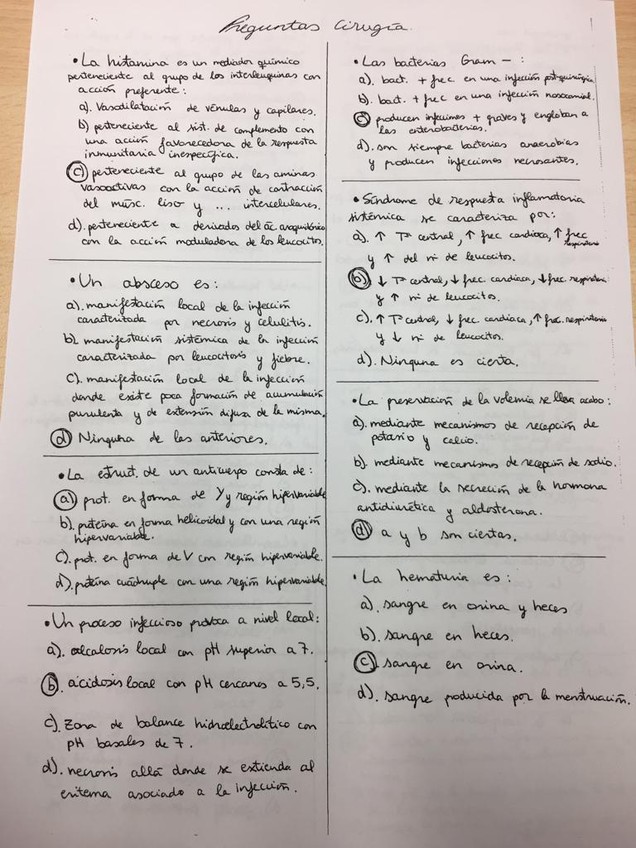 Preguntas Cirugía.
• La histamina es un mediador químico
perteneciente al grupo de las interleuquinas con
acción preferente:
a). Vasodilatación de vénulas y capilares.
b) perteneciente al sist. de complemento con
una acción favorecedora de la respuesta
inmunitaria inespecífica.
c) perteneciente al grupo de las aminas
vasoactivas con la acción de contracción
del músc. liso y ... intercelulares.
d). perteneciente a derivados del ác araquidónico
con la acción moduladora de los leucocitos.
• Un absceso es:
a). manifestación local de la infección
caracterizada por necrosis y celulitis.
b). manifestación sistémica de la infección
caracterizada por leucocitosis y fiebre.
c). manifestación local de la infección
donde existe poca formación de acumulación
purulenta y de extensión difusa de la misma.
d) Ninguna de las anteriores.
• La estruct. de un anticuerpo consta de:
a) prot. en forma de Y y región hipervariable
b). proteína en forma helicoidal y con una región
hipervariable.
c). prot. en forma de V con región hipervariable.
d). proteína cuádruple con una región hipervariable
• Un proceso infeccioso provoca a nivel local:
a). alcalosis local con pH superior a 7.
b). ácidosis local con pH cercanos a 5,5.
c). Zona de balance hidroelectrolítico con
pH basales de 7.
d). necrosis allá donde se extienda al
eritema asociado a la infección.
• Las bacterias Gram - :
a). bact. + frec en una infección postquirúrgica
b). bact. + frec en una infección nosocomial.
c) producen infecciones + graves y engloban a
las enterobacterias.
d). son siempre bacterias anaerobias
y producen infecciones necrosantes.
• Síndrome de respuesta inflamatoria
sistémica se caracteriza por:
a). ↑ Tª central, ↑ frec cardiaca, ↑ frec respiratoria
y ↑ del nº de leucocitos.
b). ↓ Tª central, ↓ frec. cardiaca, ↓ frec. respiratoria
y ↑ nº de leucocitos.
c). ↑ Tª central, ↓ frec. cardiaca, ↑ frec. respiratoria
y ↓ nº de leucocitos.
d). Ninguna es cierta.
• La preservación de la volemia se lleva acabo:
a). mediante mecanismos de recepción de
potasio y calcio.
b). mediante mecanismos de recepción de sodio.
c). mediante la secreción de la hormona
antidiurética y aldosterona.
d) a y b son ciertas.
• La hematuria es:
a). sangre en orina y heces
b). sangre en heces.
c) sangre en orina.
d). sangre producida por la menstruación.